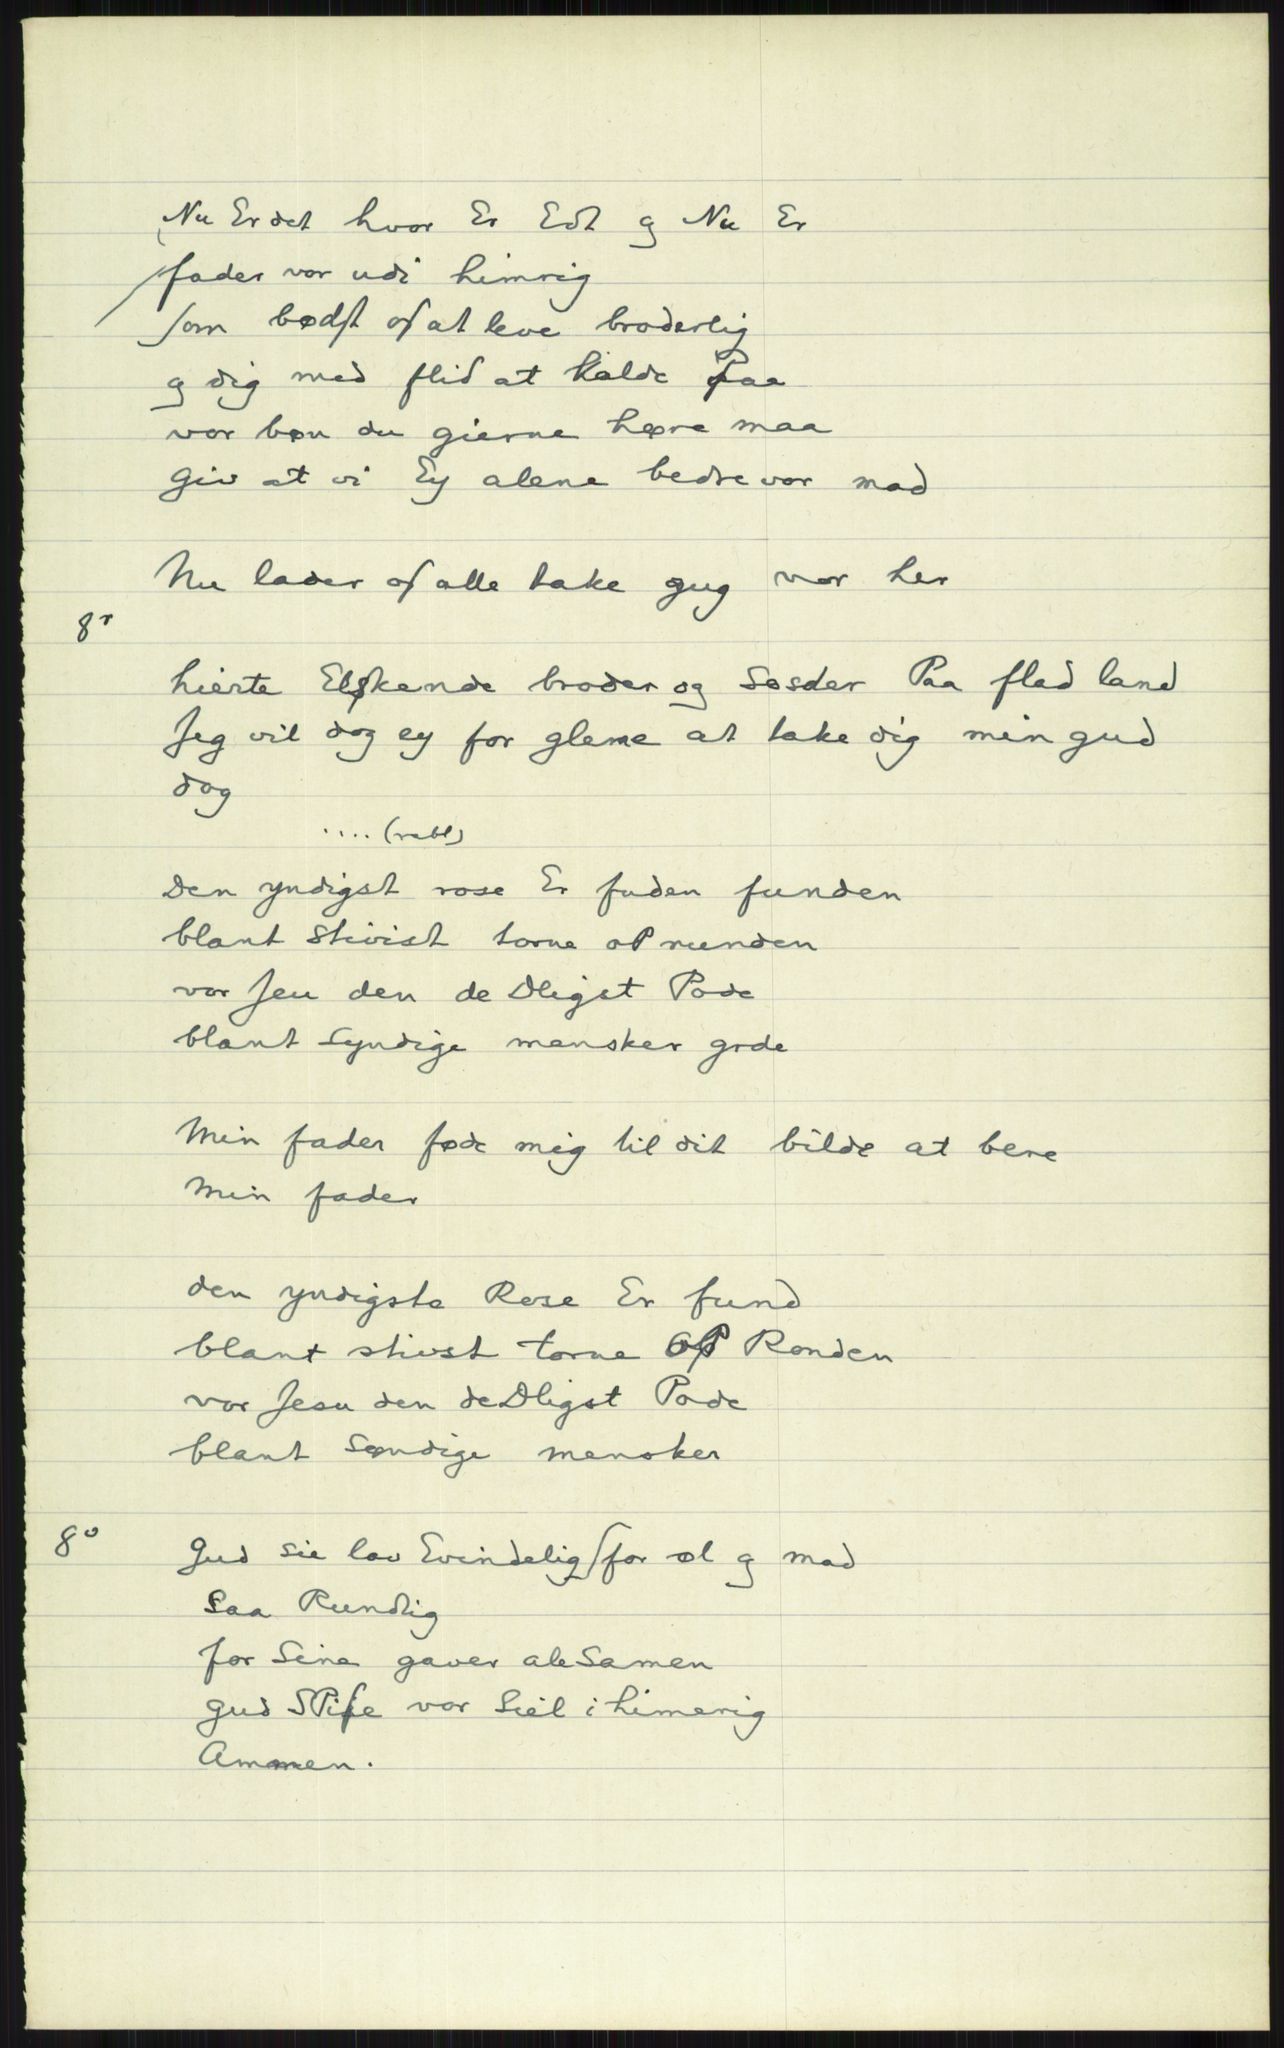 Nu Er det hvor Er Edt g Nu Er
fader vor udi himrig
som bødst os at leve broderlig
g dig med flid at kalde Paa
vor bøn du gierne høre maa
giv at vi Ey alene bedre vor mad
Nu lader os alle take gug vor her
8r
hierte Elskende broder og søsder Paa flad land
Jeg vil dog ey for gleme at take dig min gud
dog
.... (rabl)
Den yndigst rose Er fuden funden
blant stivist torne oP runden
vor Jeu den de Dligst Pode
blant syndige mensker grde
Min fader føde mig til dit bilde at bere
Min fader
den yndigste Rose Er fund
blant stivst torne oP Ronden
vor Jesu den deDligst Pode
blant Søndige mensker
8v
gud sie lov Evindelig for øl g mad
Saa Rundlig
for Sine gaver ale Samen
gud SPise vor Siel i himerig
Ammen.